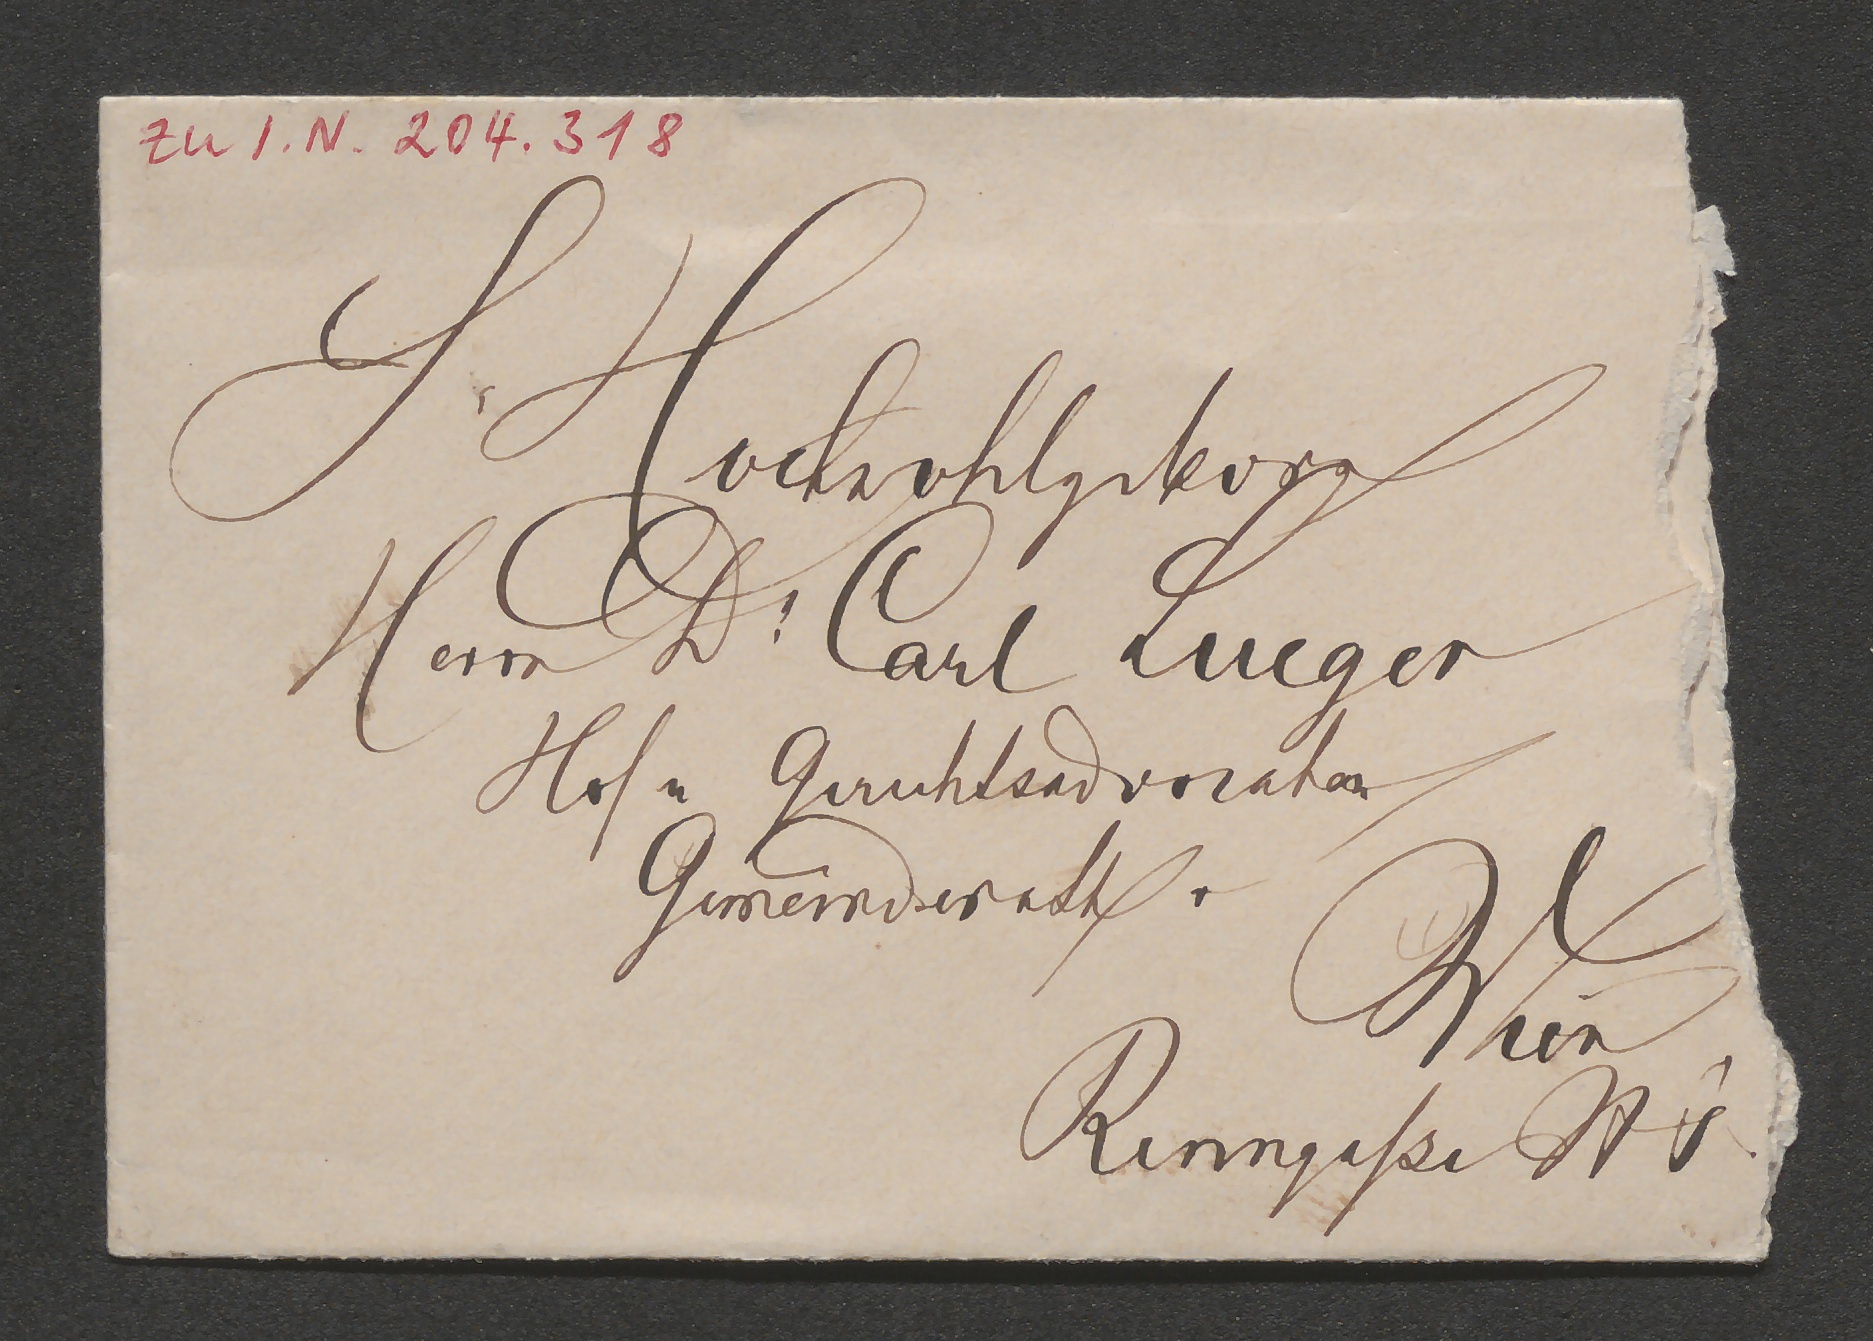 zu I.N. 204.318
Sr Hochwohlgeborn
Herrn Dr Carl Lueger
Hof u Gerichtsadvocaten
Gemeinderath
Wien
Renngasse No